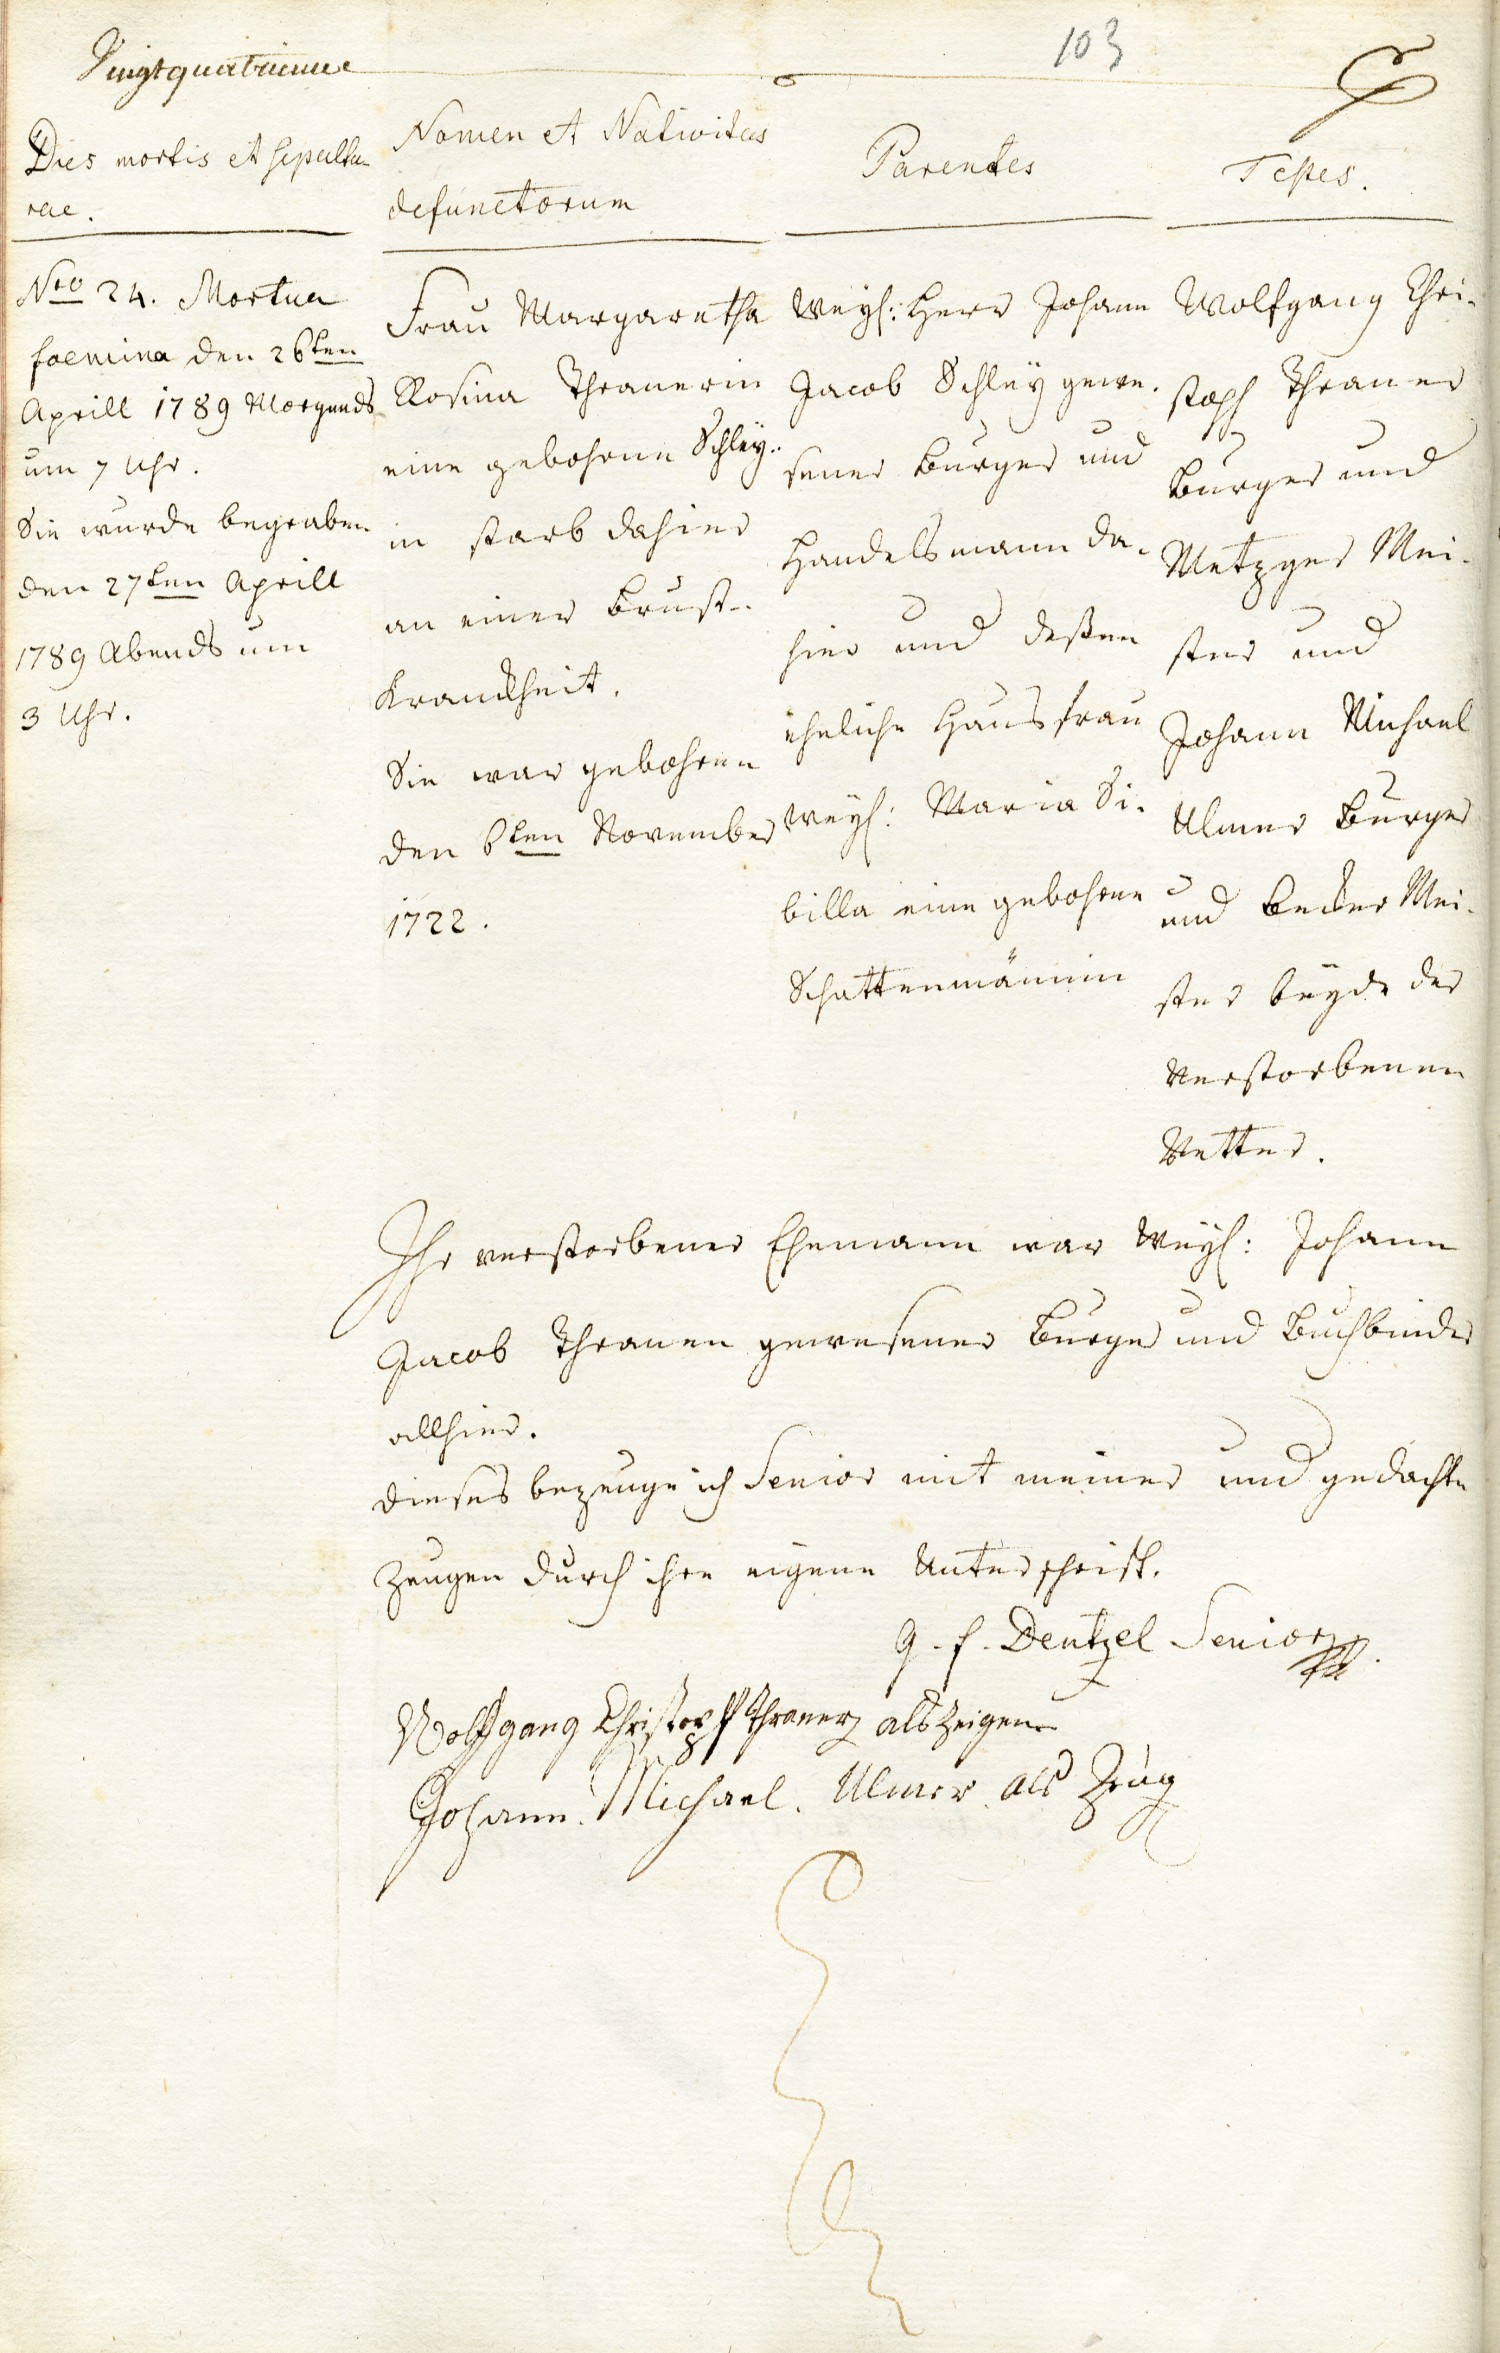 Vingtquatrieme
103
Dies mortis et sepultu-
rae.
Nomen et Nativitas
defunctorum
Parentes
Testes.
Nro 24. Mortua
foemina den 26ten
Aprill 1789 Morgends
um 7 Uhr.
Sie wurde begraben
den 27ten Aprill
1789 Abends um
3 Uhr.
Frau Margaretha
Rosina Thranerin
eine gebohrne Schley-
in starb dahier
an einer Brust-
Kranckheit.
Sie war gebohren
den 6ten November
1722.
Weyl: Herr Johann
Jacob Schley gewe-
sener Burger und
Handelsmann da-
hier und deßen
eheliche Hausfrau
weyl: Maria Si-
billa eine gebohrne
Schattenmännin
Wolfgang Chri-
stoph Thraner
Burger und
Metzger Mei-
ster und
Johann Michael
Ulmer Burger
und Becker Mei-
ster beyde der
Verstorbenen
Vetter.
Ihr verstorbener Ehemann war Weyl: Johann
Jacob Thranen gewesener Burger und Buchbinder
allhier.
dieses bezeuge ich Senior mit meiner und gedachte
Zeugen durch ihre eigene Unterschrift.
G. F. Dentzel Senior
Wolffgang Christoph Thraner als Zeigen
Johann. Michael. Ulmer als Zeug